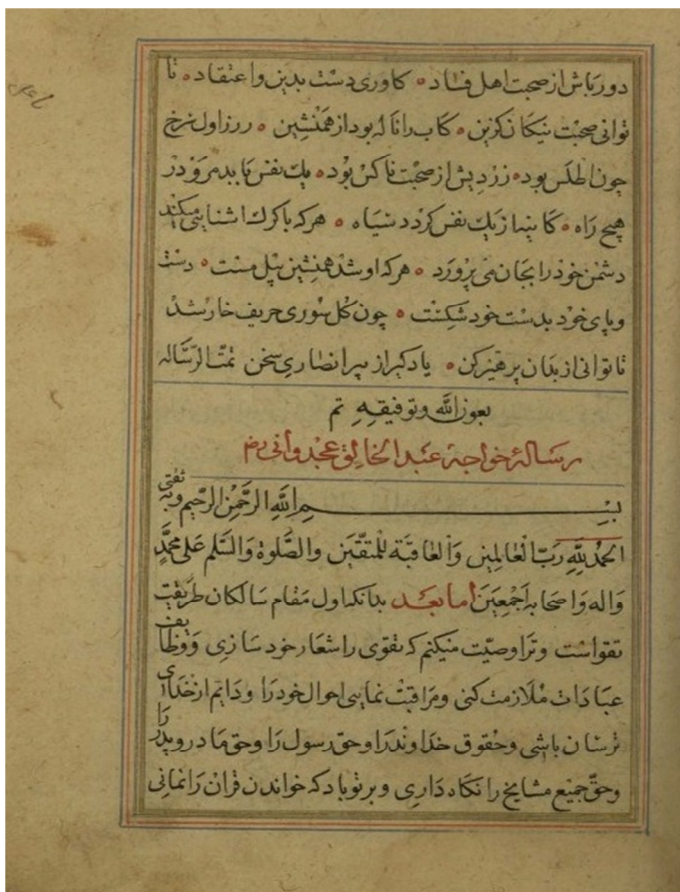 دور باش از صحبت اهل فساد ٭ کاوری دست بدین واعتقاد ٭ تا
توانی صحبت نیکان کزین ٭ کاب را ناله بود از همنشین ٭ رزاول نرخ
چون اطلس بود ٭ زردیش از صحبت ناکس بود ٭ یك نفس با بد مرو در
هیچ راه ٭ کاینه از یك نفس کردد سیاه ٭ هرکه با کرك اشنایی میکند
دشمن خود را بجان می پرورد ٭ هرکه او شد همنشین پیل مست ٭ دست
وپای خود بدست خود شکست ٭ چون کل سوری حریف خار شد
تا توانی از بدان پرهیز کن ٭ یاد کیر از پیر انصاری سخن تمت الرساله
بعون الله وتوفیقه تم
رسالۀ خواجه عبد الخالق عجدوانی رض
بسم الله الرحمن الرحیم وبه ثقتی
الحمد لله رب العالمین والعاقبة للمتقین والصلوة والسلم علی محمد
واله واصحابه اجمعین اما بعد بدانکه اول مقام سالکان طریقت
تقواست وترا وصیت میکنم که تقوی را شعار خود سازی ووظایف
عبادات ملازمت کنی ومراقبت نمایی احوال خود را ودایم از خدای
ترسان باشی وحقوق خداوند را وحق رسول را وحق مادر وپدر را
وحق جمیع مشایخ را نکاه داری وبر تو باد که خواندن قران را نمانی